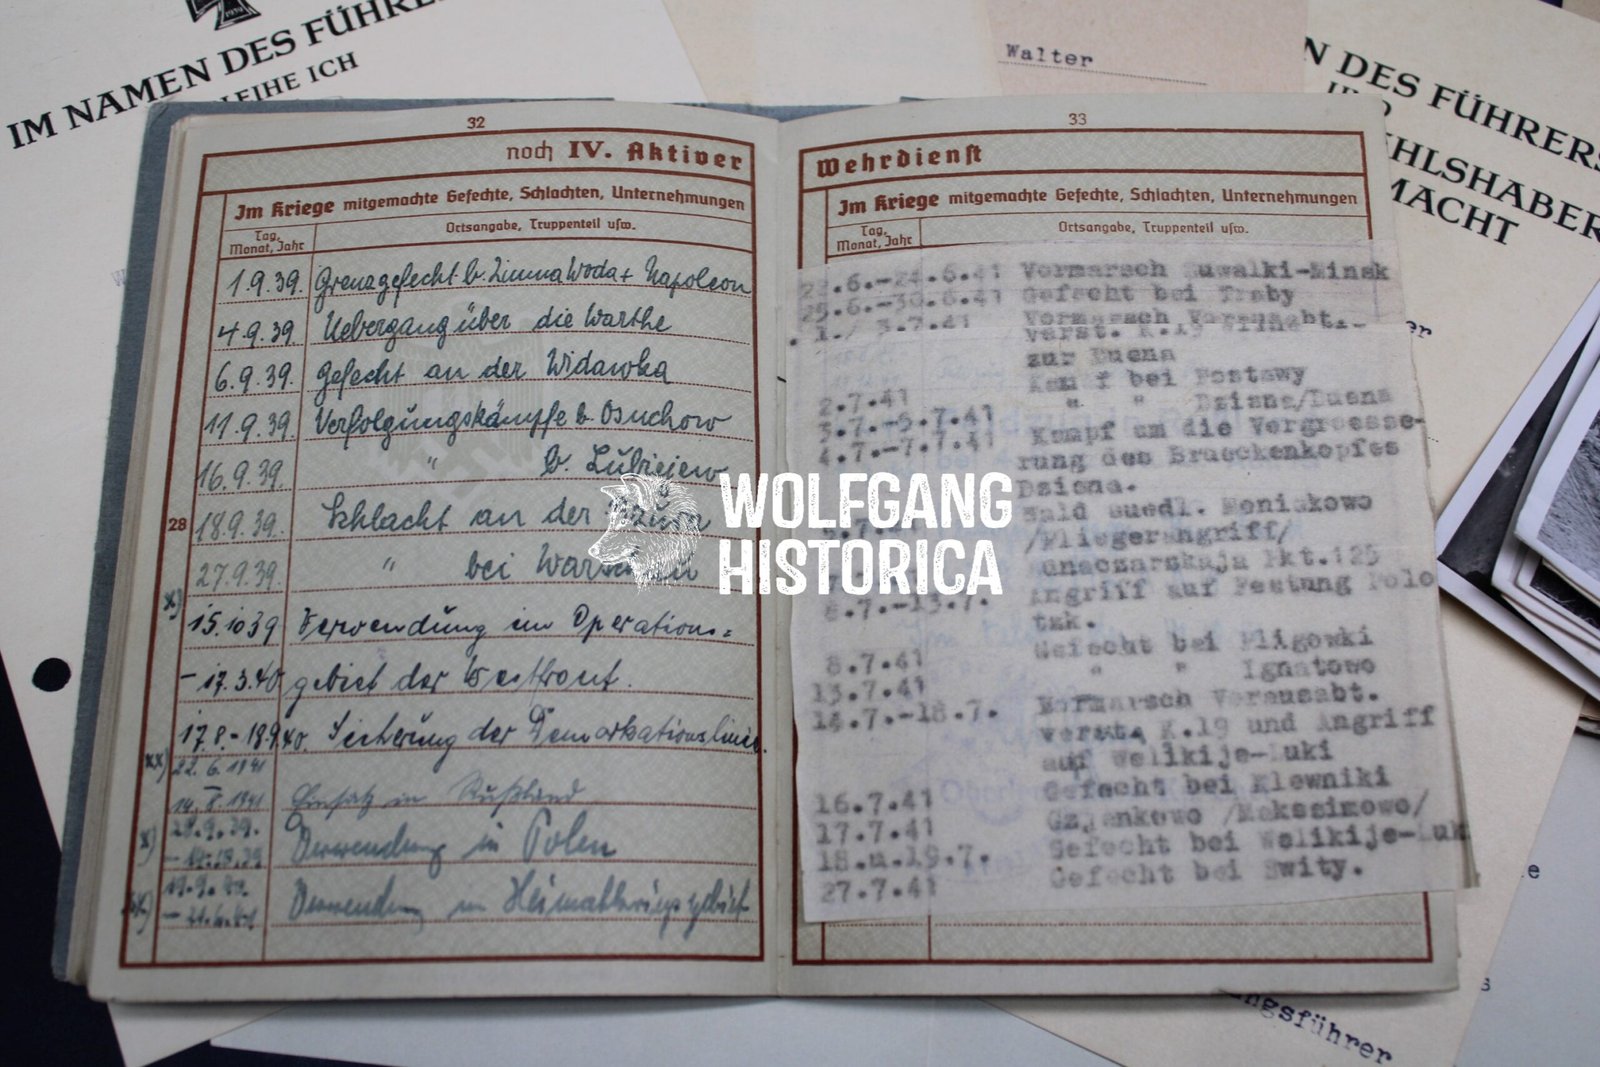 IM NAMEN DES FÜHRE
LEIHE ICH
1939
Walter
N DES FÜHRERS
UND
HLSHABER
MACHT
32
noch IV. Aktiver
Im Kriege mitgemachte Gefechte, Schlachten, Unternehmungen
Tag, Monat, Jahr
Ortsangabe, Truppenteil usw.
1.9.39. Grenzgefecht b. Zimna Woda + Napoleon
4.9.39. Uebergang über die Warthe
6.9.39. Gefecht an der Widawka
11.9.39. Verfolgungskämpfe b. Osuchow
16.9.39. " b.
28
18.9.39. Schlacht an der
27.9.39. " bei
x)
15.10 39 Verwendung im Operations=
- 17.3.40 gebiet der Westfront.
17.8.- 18.9.40. Sicherung der Demarkationslinie.
xx)
22.6.1941
Einsatz in Rußland
x)
28.9.39.
Verwendung in Polen
19.9.40.
Verwendung im Heimatkriegsgebiet
33
Wehrdienst
Im Kriege mitgemachte Gefechte, Schlachten, Unternehmungen
Tag, Monat, Jahr
Ortsangabe, Truppenteil usw.
.6.-24.6.41 Vormarsch Suwalki-Minsk
25.6.-30.6.41 Gefecht bei Traby
Vormarsch Vorausabt.
1./ 3.7.41 verst. K.19
zur Duena
2.7.41 Kampf bei Postawy
3.7.-5.7.41 " " Dzisna/Duena
4.7.-7.7.41 Kampf um die Vergroesse-
rung des Brueckenkopfes
Dzisna.
Wald suedl. Moniakowo
/Fliegerangriff/
Pkt.125
6.7.-13.7. Angriff auf Festung Polo
tzk.
8.7.41 Gefecht bei Pligowki
13.7.41 " " Ignatowo
14.7.-18.7. Vormarsch Vorausabt.
verst. K.19 und Angriff
auf Welikije-Luki
16.7.41 Gefecht bei Klewniki
17.7.41 /Makssimowo/
18.u.19.7. Gefecht bei Welikije-Luk
27.7.41 Gefecht bei Swity.
WOLFGANG
HISTORICA
er
e
s
ngsführer